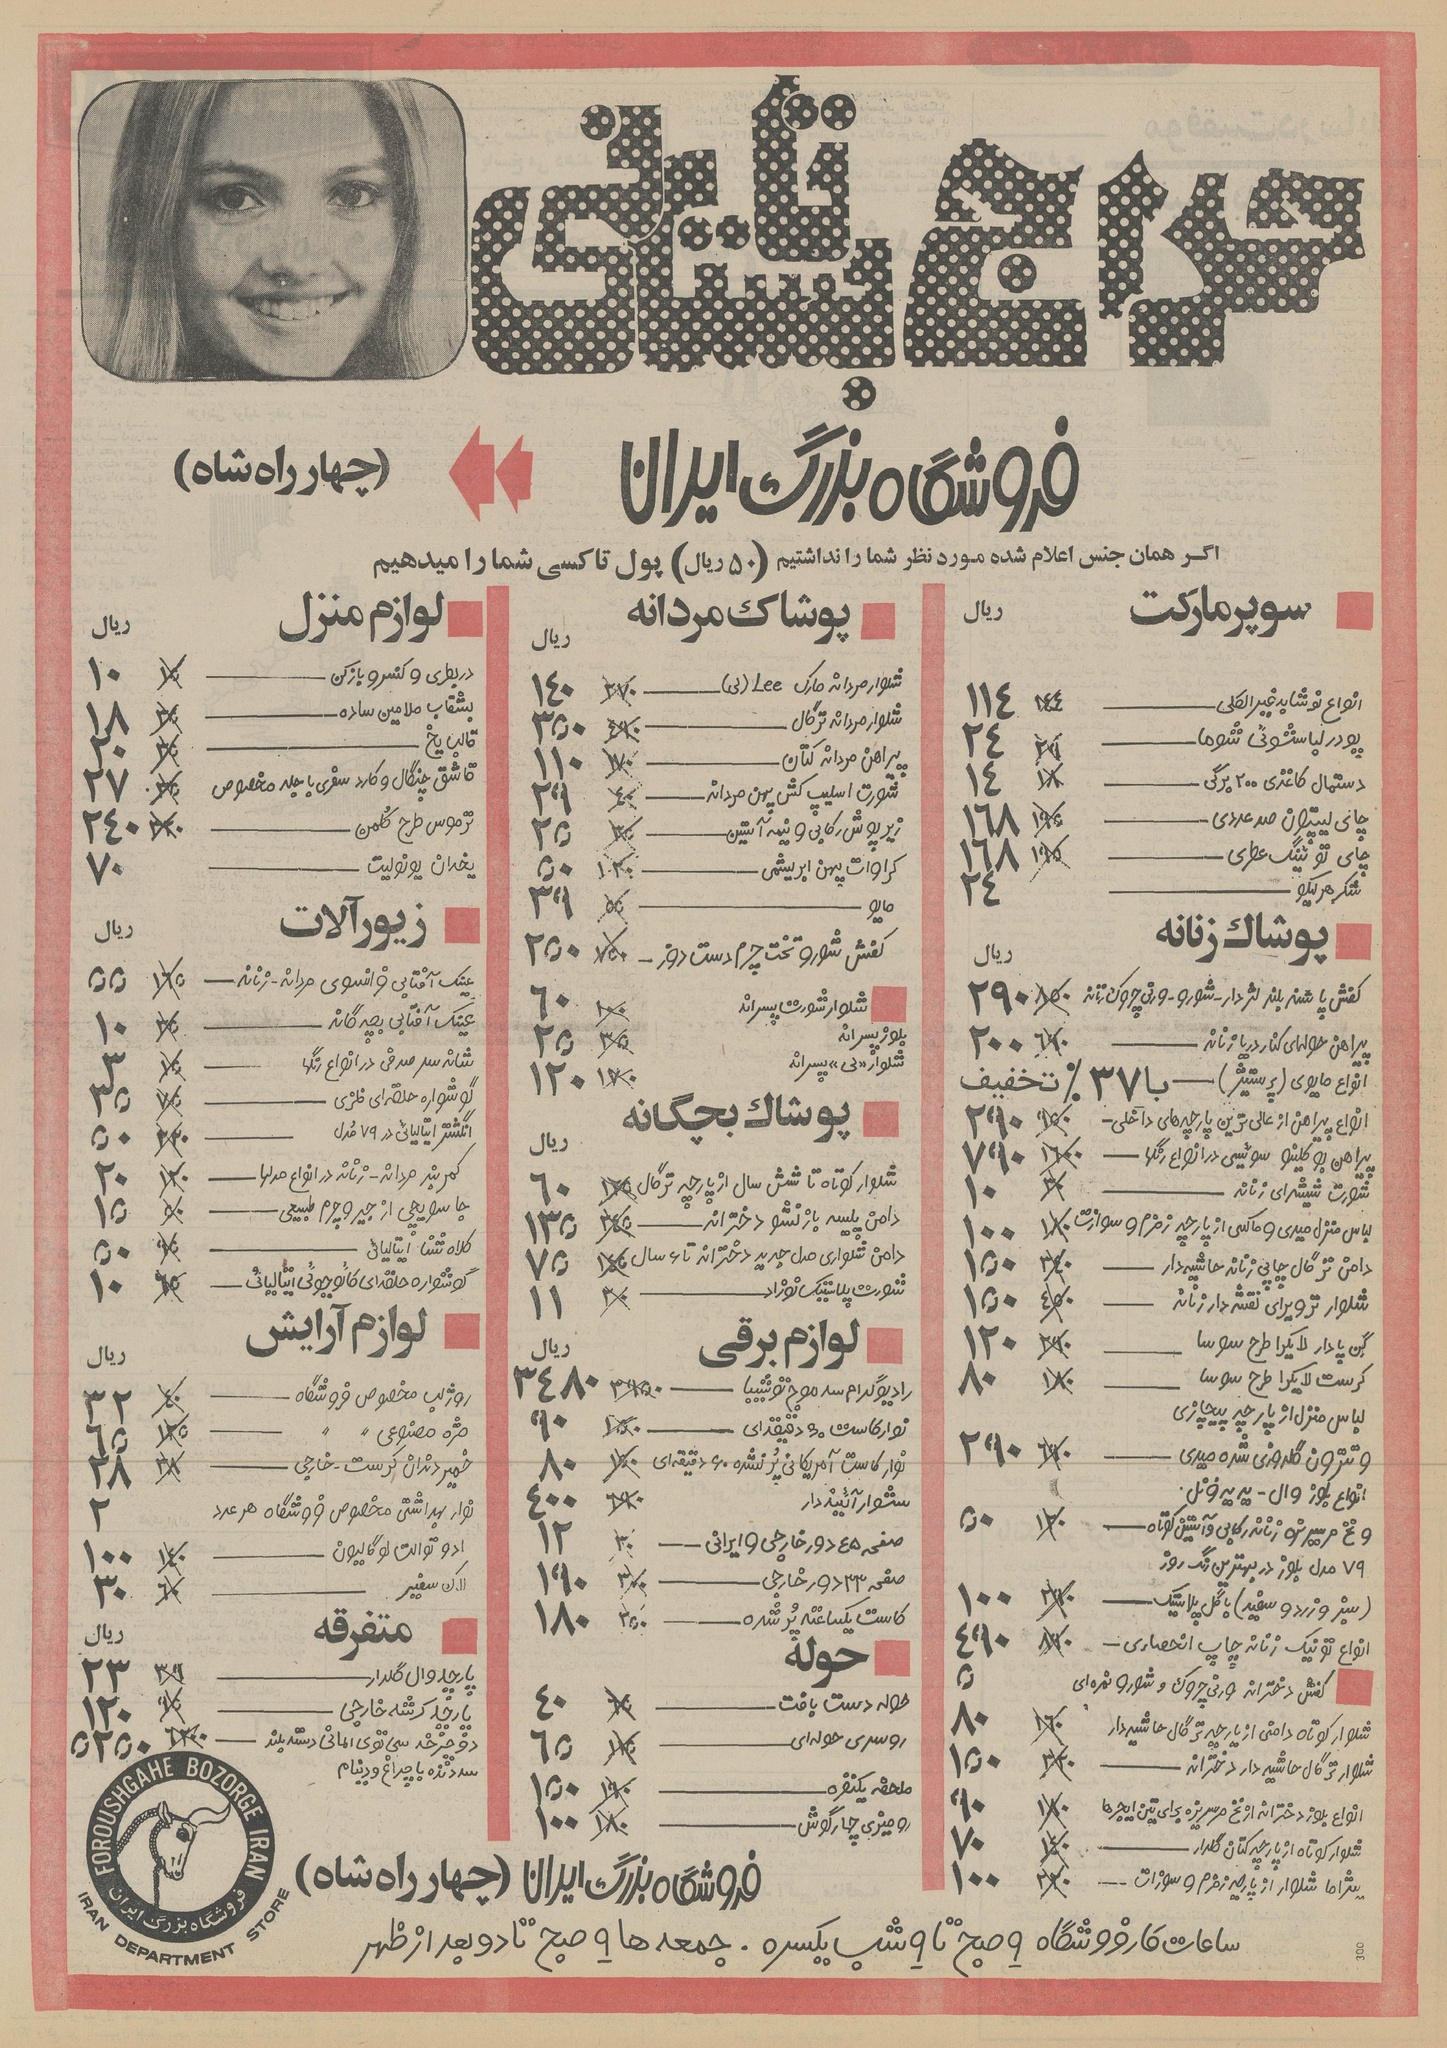 حراج تابستانی
فروشگاه بزرگ ایران
(چهار راه شاه)
اگر همان جنس اعلام شده مورد نظر شما را نداشتیم (۵۰ ریال) پول تاکسی شما را میدهیم
سوپر مارکت
ریال
انواع نوشابه غیر الکلی ۱۴۴ ۱۱۴
پودر لباسشوئی شوما ۲۴
دستمال کاغذی ۲۰۰ برگی ۱۴
چای لیپتون صد عددی ۱۹۵ ۱۶۸
چای توئینگ عطری ۱۹۵ ۱۶۸
شکر هر کیلو ۲۴
پوشاک زنانه
ریال
کفش پاشنه بلند لژدار - شورو - ورنی چروک زنانه ۲۹۰
پیراهن حوله‌ای کنار دریا زنانه ۲۰۰
انواع مایوی (پرستیژ) با ۳۷٪ تخفیف
انواع پیراهن از عالی ترین پارچه‌های داخلی ۲۹۰
پیراهن بوکلینو سوئیسی در انواع رنگها ۷۹۰
شورت شیشه‌ای زنانه ۱۰
لباس منزل میدی و ماکسی از پارچه زمزم و سوزات ۱۰۰
دامن ترگال چاپی زنانه حاشیه‌دار ۱۵۰
شلوار ترویرای نقشه دار زنانه ۱۵۰
گن پادار لایکرا طرح سوسا ۱۲۰
کرست لایکرا طرح سوسا ۸۰
لباس منزل از پارچه پیچازی
و تترون گلدوزی شده میدی ۲۹۰
انواع بلوز وال - پ پ فونل
و نخ مرسریزه زنانه رکابی و آستین کوتاه ۵۰
۷۹ مدل بلوز در بهترین رنگ روز
(سبز و زرد و سفید) با گل پلاستیک ۱۰۰
انواع تونیک زنانه چاپ انحصاری ۴۹۰
کفش دخترانه ورنی چروک و شورو نمره‌ای ۵
شلوار کوتاه دامنی از پارچه ترگال حاشیه‌دار ۸۰
شلوار ترگال حاشیه دار دخترانه ۱۵۰
انواع بلوز دخترانه از نخ مرسریزه برای تین ایجرها ۹۰
شلوار کوتاه از پارچه کتان گلدار ۷۰
پیژاما شلوار از پارچه زمزم و سوزات ۱۰۰
پوشاک مردانه
ریال
شلوار مردانه مارک Lee (لی) ۳۷۰ ۱۴۰
شلوار مردانه ترگال ۳۵۰
پیراهن مردانه کتان ۱۷۰ ۱۱۰
شورت اسلیپ کش پهن مردانه ۴۰ ۲۹
زیرپوش رکابی و نیمه آستین ۳۰ ۲۵
کراوات پهن ابریشمی ۱۲۰ ۵۰
مایو ۵۵ ۳۹
کفش شورو تخت چرم دست دوز ۷۵۰ ۲۵۰
شلوار شورت پسرانه ۶۰
بلوز پسرانه ۳۵ ۲۵
شلوار «لی» پسرانه ۱۲۰
پوشاک بچگانه
ریال
شلوار کوتاه تا شش سال از پارچه ترگال ۶۰
دامن پلیسه بازنشو دخترانه ۱۳۵
دامن شلواری مدل جدید دخترانه تا ۶ سال ۷۵
شورت پلاستیک نوزاد ۱۱
لوازم برقی
ریال
رادیوگرام سه موج توشیبا ۳۴۸۰
نوار کاست ۶۰ دقیقه‌ای ۹۰
نوار کاست آمریکائی پر نشده ۶۰ دقیقه‌ای ۸۰
سشوار آئینه‌دار ۴۰۰
صفحه ۴۵ دور خارجی و ایرانی ۳۰ ۱۲
صفحه ۳۳ دور خارجی ۱۹۰
کاست یکساعته پر شده ۲۵۰ ۱۸۰
حوله
حوله دست بافت ۴۰
روسری حوله‌ای ۶۵
ملحفه یکنفره ۱۹۰ ۱۵۰
رومیزی چارگوش ۱۸۰ ۱۰۰
لوازم منزل
ریال
دربطری و کنسرو بازکن ۱۵ ۱۰
بشقاب ملامین ساده ۱۸
قالب یخ ۲۰
قاشق چنگال و کارد سفری با جلد مخصوص ۲۷
ترموس طرح کلمن ۲۴۰
یخدان یونولیت ۷۰
زیورآلات
ریال
عینک آفتابی فرانسوی مردانه - زنانه ۱۶۵ ۵۵
عینک آفتابی بچه گانه ۱۰
شانه سر صدفی در انواع رنگها ۳
گوشواره حلقه‌ای فلزی ۳۵
انگشتر ایتالیائی در ۷۹ مدل ۵۰
کمربند مردانه - زنانه در انواع مدلها ۱۲۰ ۲۰
جا سویچی از جیر و چرم طبیعی ۵۰ ۱۵
کلاه شنا ایتالیائی ۹۰ ۵۰
گوشواره حلقه‌ای کائوچوئی ایتالیائی ۱۰
لوازم آرایش
ریال
روژلب مخصوص فروشگاه ۴۰ ۳۲
مژه مصنوعی " " ۶۵
خمیر دندان کرست - خارجی ۳۸ ۲۸
نوار بهداشتی مخصوص فروشگاه هر عدد ۲
ادو توالت لوگالیون ۱۰۰
لاک سفیر ۶۰ ۳۰
متفرقه
ریال
پارچه وال گلدار ۲۳
پارچه کرشه خارجی ۱۲۰
دوچرخه سی توی آلمانی دسته بلند ۵۲۵۰
سه دنده با چراغ و دینام
FOROUSHGAHE BOZORGE IRAN
فروشگاه بزرگ ایران
IRAN DEPARTMENT STORE
فروشگاه بزرگ ایران (چهار راه شاه)
ساعات کار فروشگاه ۹ صبح تا ۹ شب یکسره . جمعه ها ۹ صبح تا دو بعد از ظهر
300